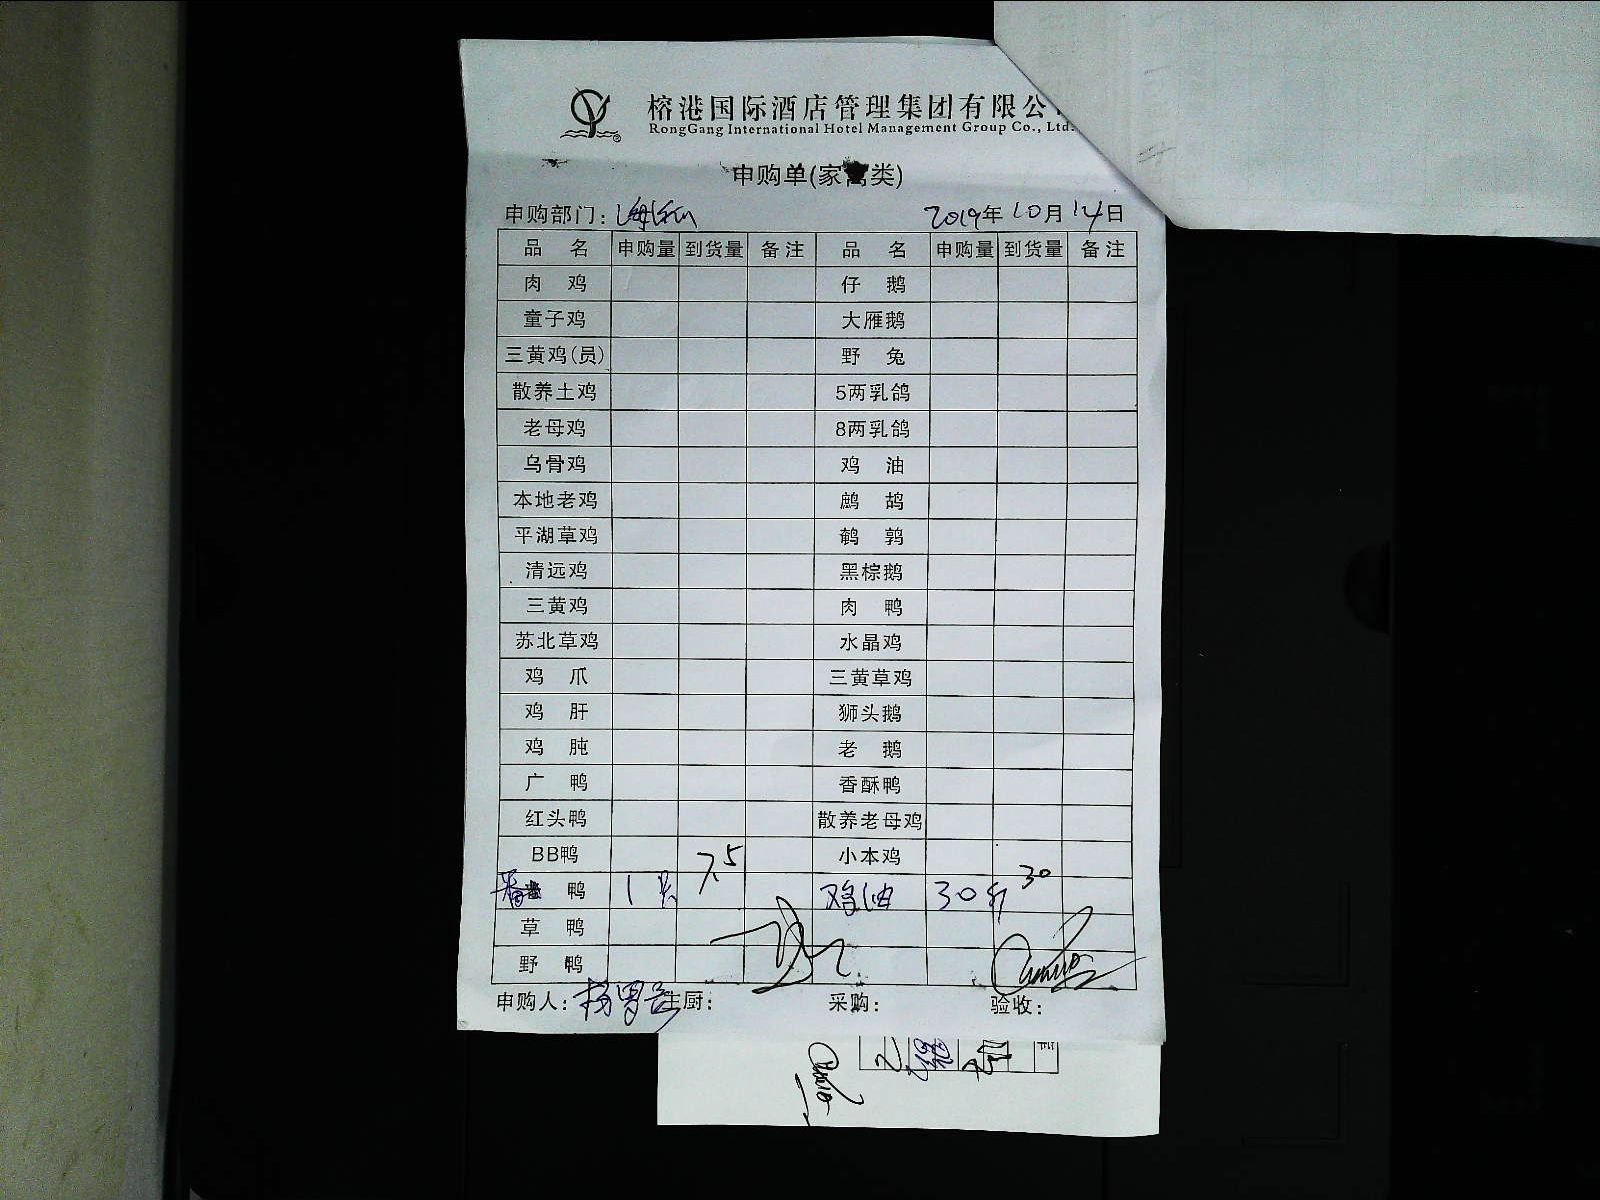 榕港国际酒店管理集团有限公
RongGang International Hotel Management Group Co., Ltd.
申购单(家禽类)
申购部门: 2019年10月14日
品 名 申购量 到货量 备注 品 名 申购量 到货量 备注
肉 鸡 仔 鹅
童子鸡 大雁鹅
三黄鸡(员) 野 兔
散养土鸡 5两乳鸽
老母鸡 8两乳鸽
乌骨鸡 鸡 油
本地老鸡 鹧 鸪
平湖草鸡 鹌 鹑
清远鸡 黑棕鹅
三黄鸡 肉 鸭
苏北草鸡 水晶鸡
鸡 爪 三黄草鸡
鸡 肝 狮头鹅
鸡 肫 老 鹅
广 鸭 香酥鸭
红头鸭 散养老母鸡
BB鸭 小本鸡
番 鸭 1只 7.5 鸡油 30斤 30
草 鸭
野 鸭
申购人: 主厨: 采购: 验收: